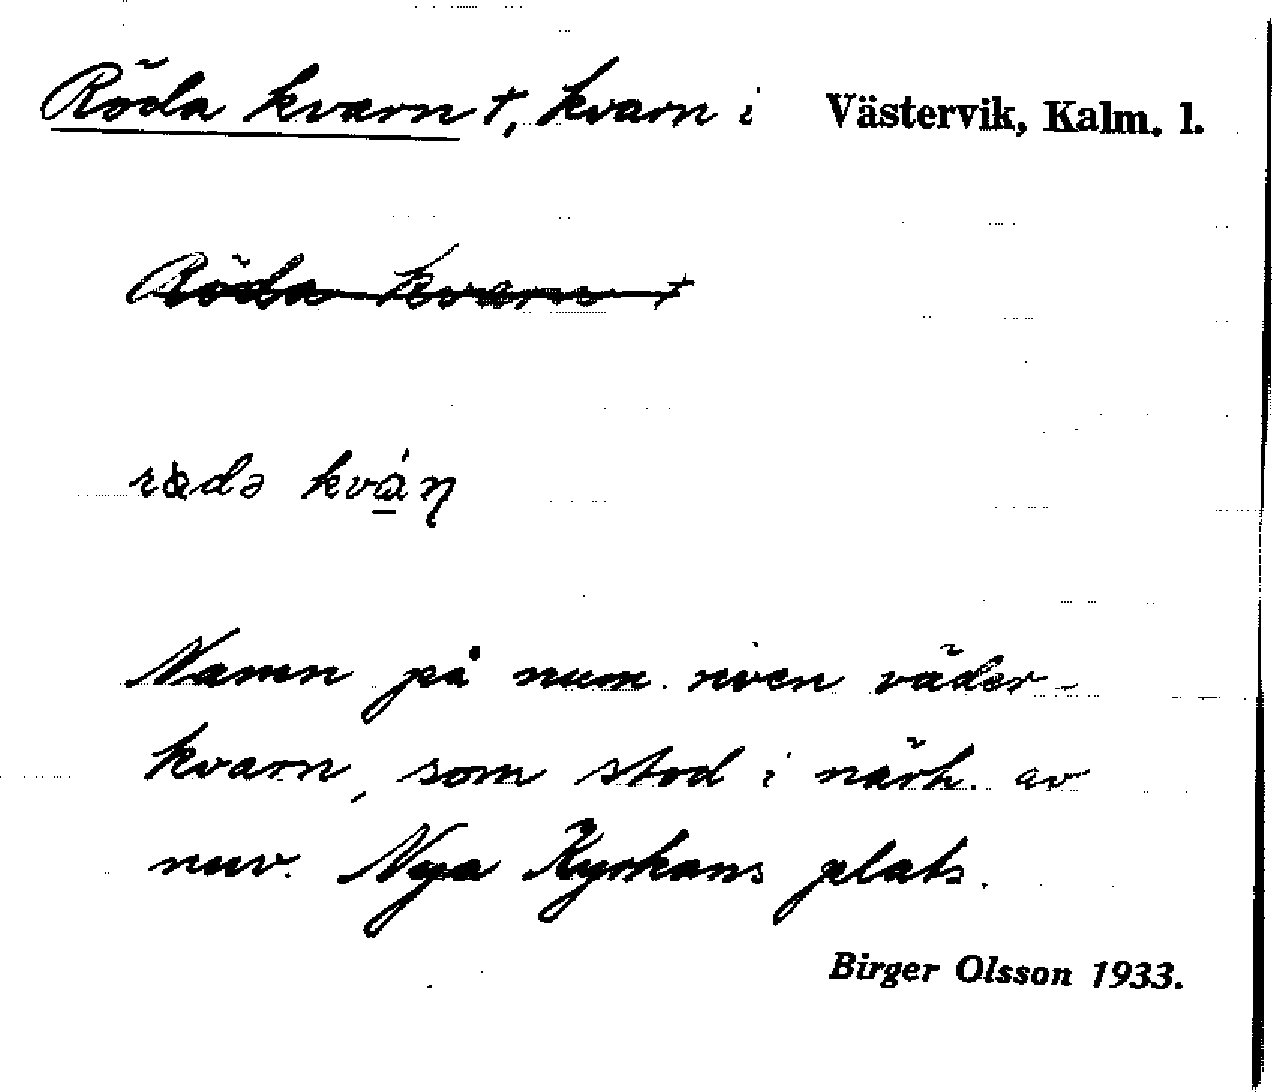 Röda kvarn †, kvarn i Västervik, Kalm. l.
Röda kvarn †
Namn på num. riven väder-
kvarn, som stod i närh. av
nuv. Nya Kyrkans plats.
Birger Olsson 1933.